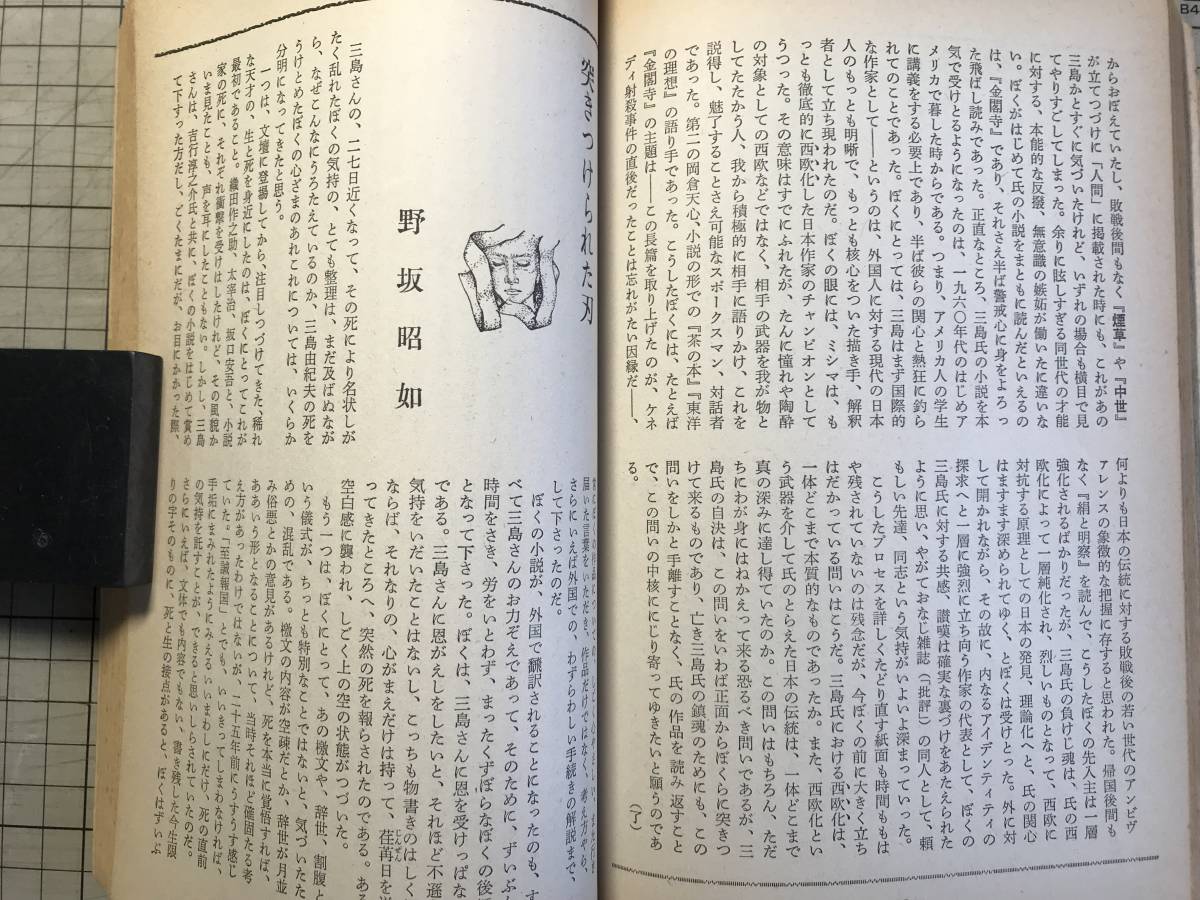 からおぼえていたし、敗戦後間もなく『煙草』や『中世』
が立てつづけに「人間」に掲載された時にも、これがあの
三島かとすぐに気づいたけれど、いずれの場合も横目で見
てやりすごしてしまった。余りに眩しすぎる同世代の才能
に対する、本能的な反撥、無意識の嫉妬が働いたに違いな
い。ぼくがはじめて氏の小説をまともに読んだといえるの
は、『金閣寺』であり、それさえ半ば警戒心に身をよろっ
た飛ばし読みであった。正直なところ、三島氏の小説を本
気で受けとるようになったのは、一九六〇年代のはじめア
メリカで暮した時からである。つまり、アメリカ人の学生
に講義をする必要上であり、半ば彼らの関心と熱狂に釣ら
れてのことであった。ぼくにとっては、三島はまず国際的
な作家として――というのは、外国人に対する現代の日本
人のもっとも明晰で、もっとも核心をついた描き手、解釈
者として立ち現われたのだ。ぼくの眼には、ミシマは、も
っとも徹底的に西欧化した日本作家のチャンピオンとして
うつった。その意味はすでにふれたが、たんに憧れや陶酔
の対象としての西欧などではなく、相手の武器を我が物と
してたたかう人、我から積極的に相手に語りかけ、これを
説得し、魅了することさえ可能なスポークスマン、対話者
であった。第二の岡倉天心、小説の形での『茶の本』『東洋
の理想』の語り手であった。こうしたぼくには、たとえば
『金閣寺』の主題は――この長篇を取り上げたのが、ケネ
ディ射殺事件の直後だったことは忘れがたい因縁だ――、
何よりも日本の伝統に対する敗戦後の若い世代のアンビヴ
ァレンスの象徴的な把握に存すると思われた。帰国後間も
なく『絹と明察』を読んで、こうしたぼくの先入主は一層
強化されるばかりだったが、三島氏の負けじ魂は、氏の西
欧化によって一層純化され、烈しいものとなって、西欧に
対抗する原理としての日本の発見、理論化へと、氏の関心
はますます深められてゆく、とぼくは受けとった。外に対
して開かれながら、その故に、内なるアイデンティティの
探求へと一層に強烈に立ち向う作家の代表として、ぼくの
三島氏に対する共感、讃嘆は確実な裏づけをあたえられた
ように思い、やがておなじ雑誌（「批評」）の同人として、頼
もしい先達、同志という気持がいよいよ深まっていった。
こうしたプロセスを詳しくたどり直す紙面も時間ももは
や残されていないのは残念だが、今ぼくの前に大きく立ち
はだかっている問いはこうだ。三島氏における西欧化は、
一体どこまで本質的なものであったか。また、西欧化とい
う武器を介して氏のとらえた日本の伝統は、一体どこまで
真の深みに達し得ていたのか。この問いはもちろん、ただ
ちにわが身にはねかえって来る恐るべき問いであるが、三
島氏の自決は、この問いをいわば正面からぼくらに突きつ
けて来るものであり、亡き三島氏の鎮魂のためにも、この
問いをしかと手離すことなく、氏の作品を読み返すこと
で、この問いの中核ににじり寄ってゆきたいと願うのであ
る。（了）
突きつけられた刃
野坂昭如
三島さんの、二七日近くなって、その死により名状しが
たく乱れたぼくの気持の、とても整理は、まだ及ばぬなが
ら、なぜこんなにうろたえているのか、三島由紀夫の死を
うけとめたぼくの心ざまのあれこれについては、いくらか
分明になってきたと思う。
一つは、文壇に登場してから、注目しつづけてきた、稀れ
な天才の、生と死を身近にしたのは、ぼくにとってこれが
最初であること。織田作之助、太宰治、坂口安吾と、小説
家の死に、それぞれ衝撃を受けはしたけれど、その風貌か
いま見たことも、声を耳にしたこともない。しかし、三島
さんは、吉行淳之介氏と共に、ぼくの小説をはじめて賞め
て下すった方だし、ごくたまにだが、お目にかかった際、
届いた言葉をいただき、作品だけではなく、考え方やら、
さらにいえば外国での、わずらわしい手続きの解説まで、
して下さったのだ。
ぼくの小説が、外国で翻訳されることになったのも、す
べて三島さんのお力ぞえであって、そのために、ずいぶん
時間をさき、労をいとわず、まったくずぼらなぼくの後
となって下さった。ぼくは、三島さんに恩を受けっぱな
である。三島さんに恩がえしをしたいと、それほど不遜
気持をいだいたことはないし、こっちも物書きのはしく
ならば、それなりの、心がまえだけは持って、荏苒日を
ってきたところへ、突然の死を報らされたのである。ある
空白感に襲われ、しごく上の空の状態がつづいた。
もう一つは、ぼくにとって、あの檄文や、辞世、割腹と
いう儀式が、ちっとも特別なことではないと、気づいたた
めの、混乱である。檄文の内容が空疎だとか、辞世が月並
み俗悪とかの意見があるけれど、死を本当に覚悟すれば、
ああいう形となることについて、当時それほど確固たる考
え方があったわけではないが、二十五年前にうすうす感じ
ていた。「至誠報国」とでも、いいきってしまわなければ、
手垢にまみれたようにみえるいいまわしにだけ、死の直前
の気持を託すことが、できると思いしらされていたのだ。
さらにいえば、文体でも内容でもない、書き残した今生限
りの字そのものに、死と生の接点があると、ぼくはずいぶ